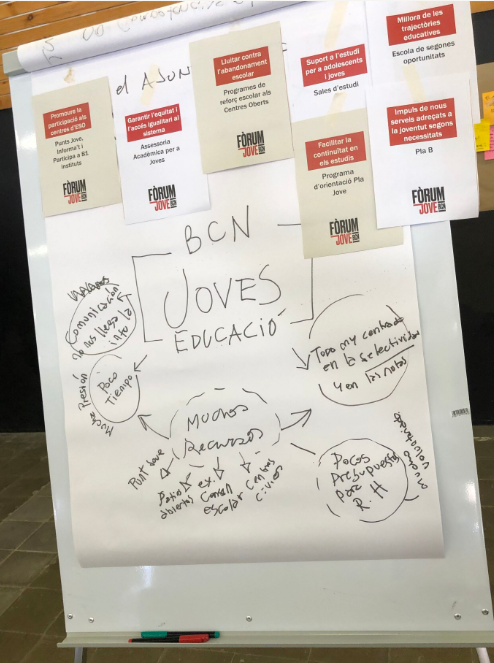 el AJUN
Promoure la
participació als
centres d'ESO
Punts Jove,
Informa't i
Participa a 81
instituts
FÒRUM
JOVE BCN
Garantir l'equitat i
l'accés igualitari al
sistema
Assessoria
Acadèmica per a
Joves
FÒRUM
JOVE BCN
Lluitar contra
l'abandonament
escolar
Programes de
reforç escolar als
Centres Oberts
FÒRUM
JOVE BCN
Suport a l'estudi
per a adolescents
i joves
Sales d'estudi
Millora de les
trajectòries
educatives
Escola de segones
oportunitats
Facilitar la
continuïtat en
els estudis
Programa
d'orientació Pla
Jove
FÒRUM
JOVE BCN
Impuls de nous
serveis adreçats a
la joventut segons
necessitats
Pla B
FÒRUM
JOVE BCN
BCN
JOVES
EDUCACIÓ
Comunicación
no nos llega
info
Mucha Presión
Poco
Tiempo
Topo my centrado
en la selectividad
y en las notas
Muchos
Recursos
Punt Jove
Patios
abiertos
ex.
Consell
escolar
Centros
cívicos
Pocos
Presupuestos
para
R.H